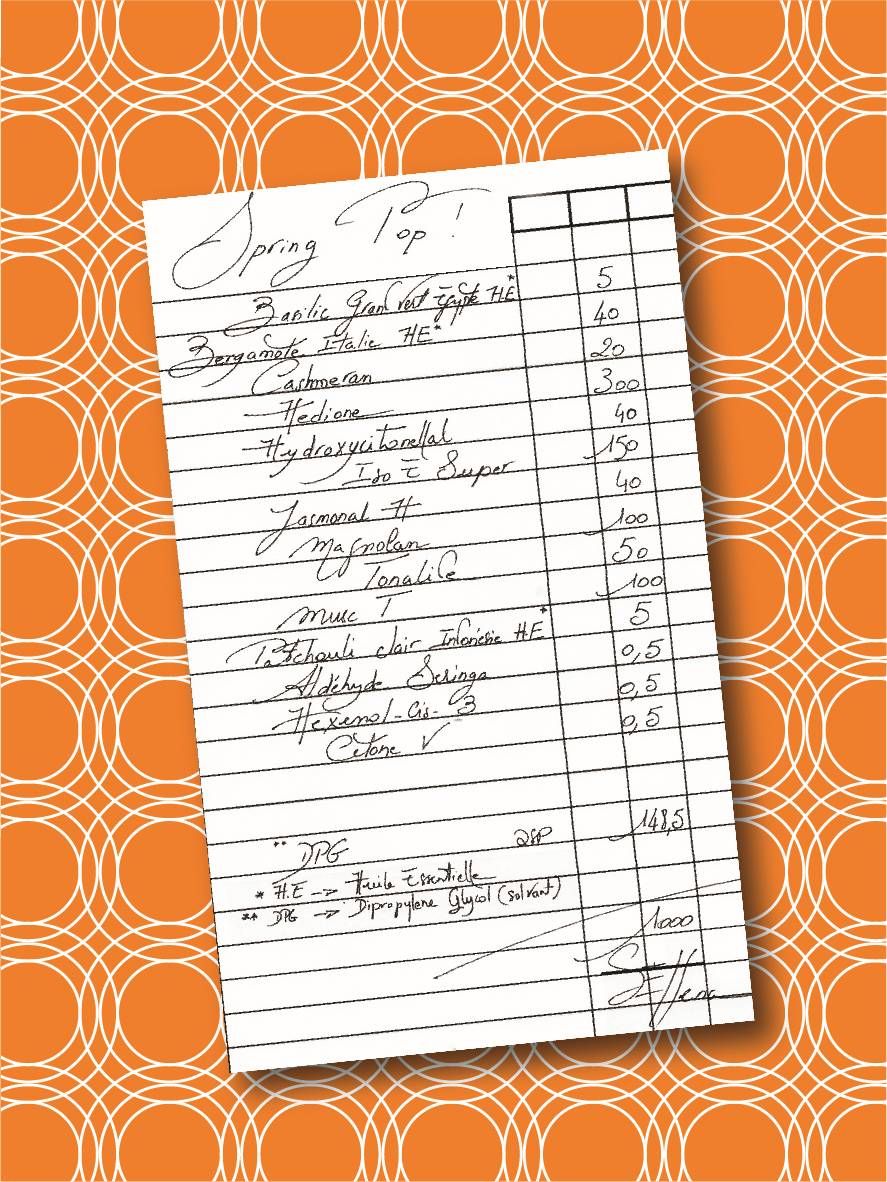 Spring Pop !
Basilic Grand vert Egypte H.E* 5
Bergamote Italie HE* 40
Cashmeran 20
Hedione 300
Hydroxycitronellal 40
Iso E Super 150
Jasmonal H 40
Magnolan 100
Tonalide 50
Musc T 100
Patchouli clair Indonésie H.E* 5
Aldéhyde Seringa 0,5
Hexenol-Cis-3 0,5
Cétone V 0,5
** DPG QSP 148,5
* H.E -> Huile Essentielle
** DPG -> Dipropylene Glycol (solvant)
1000